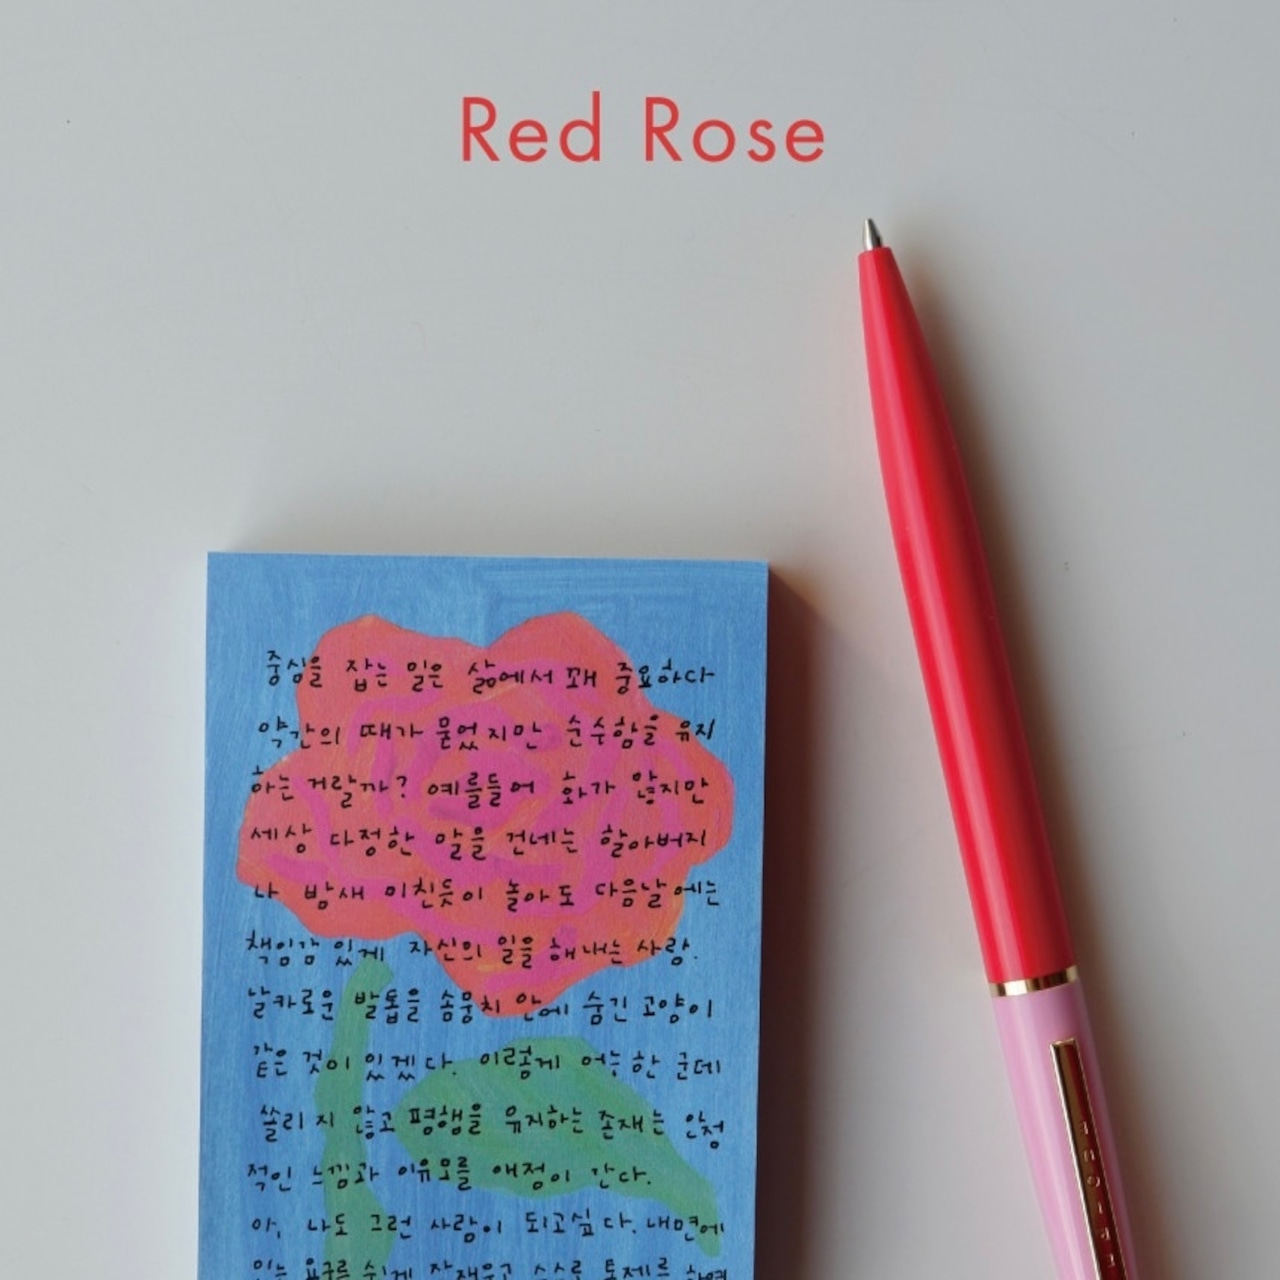 Red Rose
중심을 잡는 일은 삶에서 꽤 중요하다
약간의 때가 묻었지만 순수함을 유지
하는 거랄까? 예를들어 화가 않지만
세상 다정한 말을 건네는 할아버지
나 밤새 미친듯이 놀아도 다음날에는
책임감 있게 자신의 일을 해내는 사람.
날카로운 발톱을 솜뭉치 안에 숨긴 고양이
같은 것이 있겠다. 이렇게 어느 한 군데
쏠리지 않고 평행을 유지하는 존재는 안정
적인 느낌과 이유모를 애정이 간다.
아, 나도 그런 사람이 되고싶다. 내면에
있는 욕구를 쉽게 잠재우고 스스로 통제를